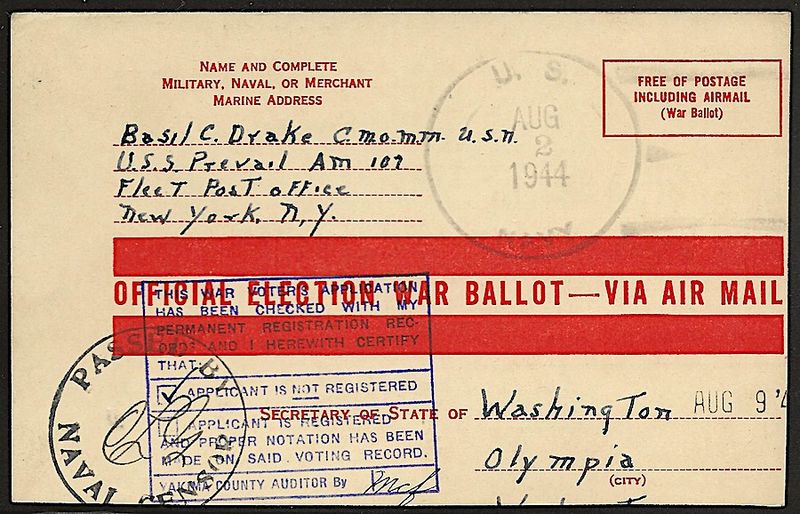 NAME AND COMPLETE
MILITARY, NAVAL, OR MERCHANT
MARINE ADDRESS
Basil C. Drake C.mo.m.m. U.S.N.
U.S.S. Prevail Am 107
Fleet Post office
New York, N,Y.
U. S.
AUG
2
1944
NAVY
FREE OF POSTAGE
INCLUDING AIRMAIL
(War Ballot)
OFFICIAL ELECTION WAR BALLOT—VIA AIR MAIL
THIS WAR VOTER'S APPLICATION
HAS BEEN CHECKED WITH MY
PERMANENT REGISTRATION REC-
ORDS AND I HEREWITH CERTIFY
THAT:
APPLICANT IS NOT REGISTERED
APPLICANT IS REGISTERED
AND PROPER NOTATION HAS BEEN
MADE ON SAID VOTING RECORD.
YAKIMA COUNTY AUDITOR By
PASSED BY
NAVAL CENSOR
SECRETARY OF STATE OF Washington
AUG 9 '4
Olympia
(CITY)